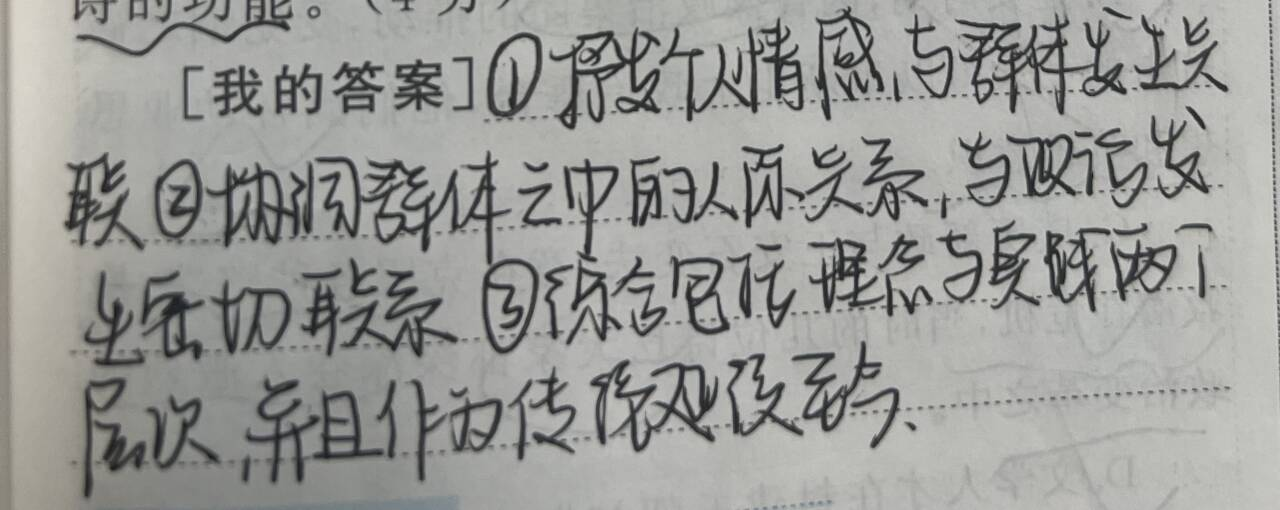 诗的功能。（4分）
[我的答案]①抒发个人情感,与群体发生关
联②协调群体之中的人际关系,与政治发
生密切联系③综合包括理念与实践两个
层次,并且作为传统延设至今、